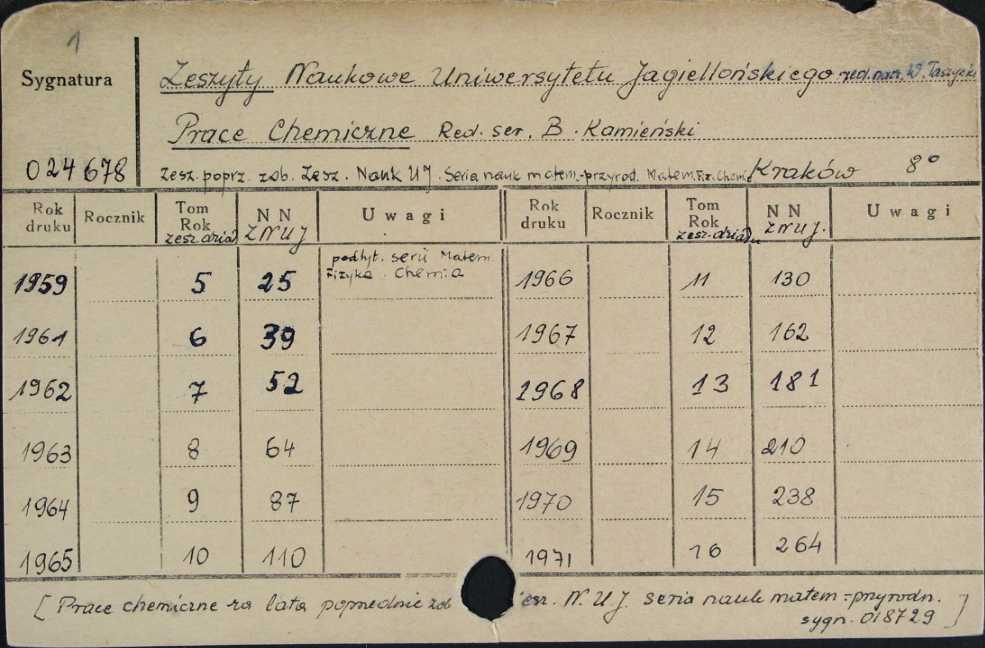 1
Sygnatura
Zeszyty Naukowe Uniwersytetu Jagiellońskiego red. nacz. W. Taszycki
Prace Chemiczne Red. ser. B. Kamieński
024678
Zesz. poprz. zob. Zesz. Nauk UJ. Seria nauk matem.-przyrod. Matem. Fiz. Chemia Kraków 8°
Rok druku Rocznik Tom Rok zesz. działu N N ZNUJ Uwagi Rok druku Rocznik Tom Rok zesz. działu N N ZNUJ. Uwagi
1959 5 25 podtyt. serii Matem. Fizyka. Chemia 1966 11 130
1961 6 39 1967 12 162
1962 7 52 1968 13 181
1963 8 64 1969 14 210
1964 9 87 1970 15 238
1965 10 110 1971 16 264
[Prace chemiczne za lata poprzednie zob esz. N. UJ. seria nauk matem-przyrodn.
sygn. 018729]